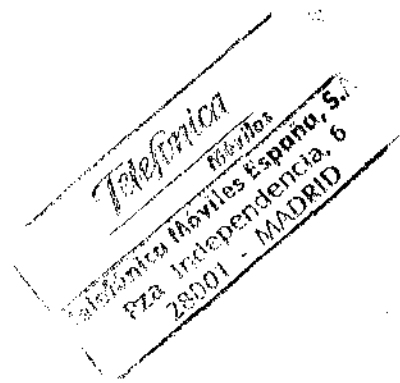 Telefónica
Móviles
Telefónica Móviles España, S.A
Pza Independencia, 6
28001 - MADRID